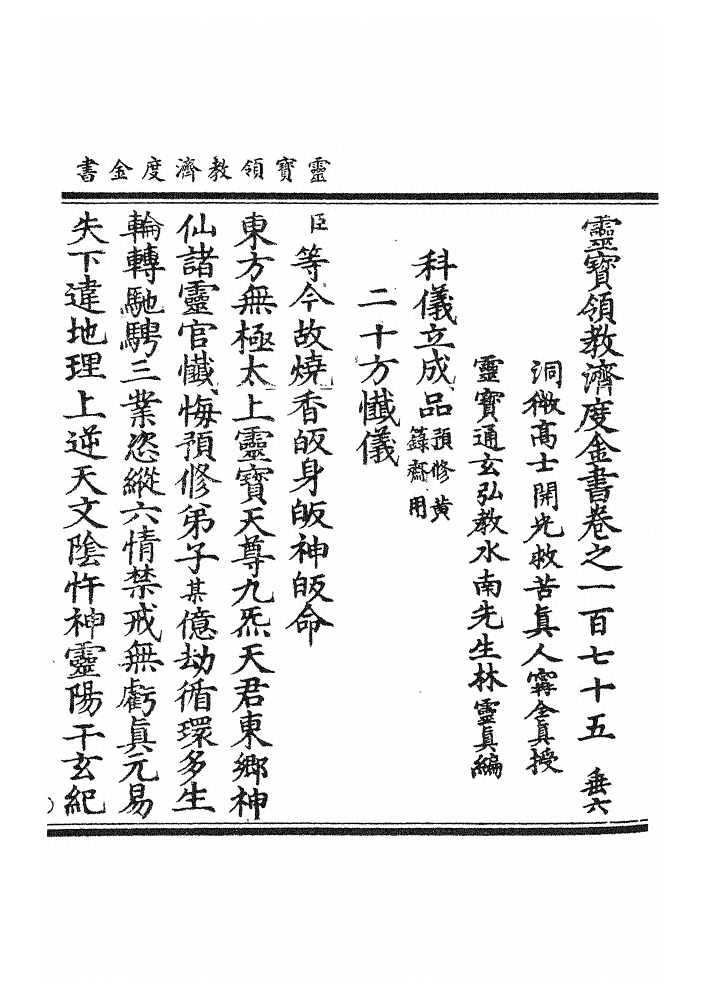 靈寶領教濟度金書
靈寶領教濟度金書卷之一百七十五 垂六
洞微高士開光救苦眞人甯全眞授
靈寶通玄弘教水南先生林靈眞編
科儀立成品預修黃籙齋用
二十方懺儀
臣等今故燒香皈身皈神皈命
東方無極太上靈寶天尊九炁天君東鄉神
仙諸靈官懺悔預修弟子某億劫循環多生
輪轉馳騁三業恣縱六情禁戒無虧眞元易
失下違地理上逆天文陰忤神靈陽干玄紀